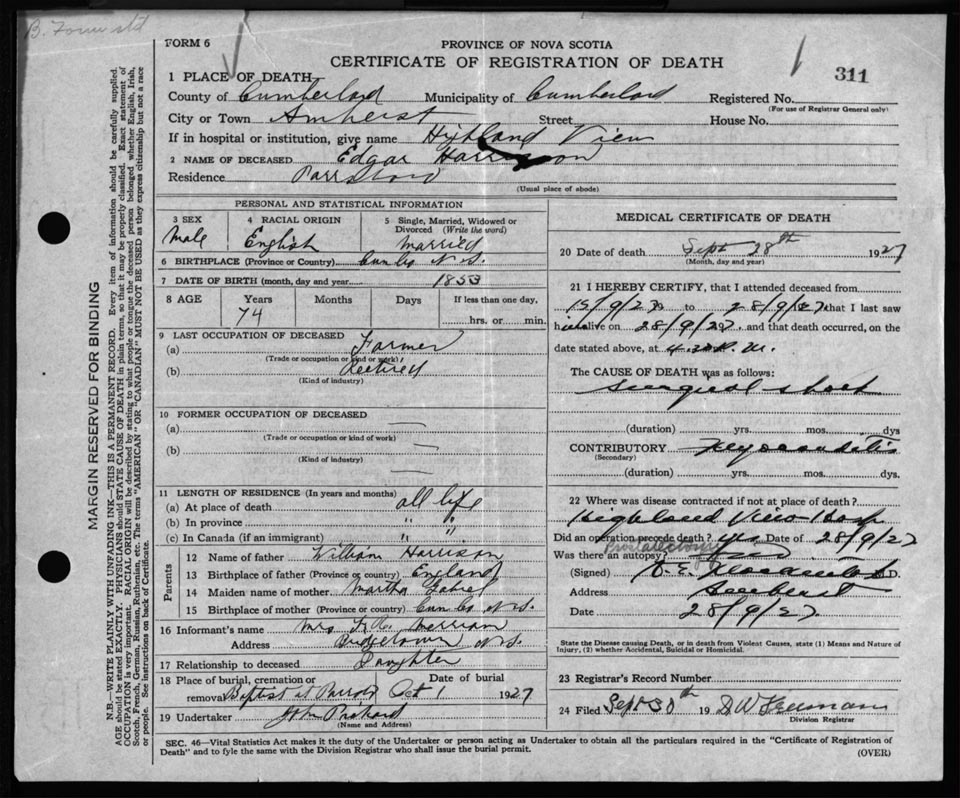 FORM 6
PROVINCE OF NOVA SCOTIA
CERTIFICATE OF REGISTRATION OF DEATH
311
1 PLACE OF DEATH
County of Cumberland Municipality of Cumberland Registered No.
(For use of Registrar General only)
City or Town Amherst Street House No.
If in hospital or institution, give name Highland View
2 NAME OF DECEASED Edgar Harrison
Residence Parrsboro
(Usual place of abode)
PERSONAL AND STATISTICAL INFORMATION
3 SEX Male
4 RACIAL ORIGIN English
5 Single, Married, Widowed or Divorced (Write the word) Married
6 BIRTHPLACE (Province or Country) Cum Co N.S.
7 DATE OF BIRTH (month, day and year) 1853
8 AGE Years Months Days If less than one day,
74 hrs. or min.
9 LAST OCCUPATION OF DECEASED
(a) Farmer
(Trade or occupation or kind of work)
(b) Retired
(Kind of industry)
10 FORMER OCCUPATION OF DECEASED
(a)
(Trade or occupation or kind of work)
(b)
(Kind of industry)
11 LENGTH OF RESIDENCE (In years and months)
(a) At place of death all life
(b) In province " "
(c) In Canada (if an immigrant) " "
Parents
12 Name of father William Harrison
13 Birthplace of father (Province or country) England
14 Maiden name of mother Martha
15 Birthplace of mother (Province or country) Cum Co N.S.
16 Informant's name Mrs Merriam
Address Bridgetown N.S.
17 Relationship to deceased Daughter
18 Place of burial, cremation or Date of burial
removal Baptist at Parrsboro Oct 1 1927
19 Undertaker John
(Name and Address)
MEDICAL CERTIFICATE OF DEATH
20 Date of death Sept 28th 1927
(Month, day and year)
21 I HEREBY CERTIFY, that I attended deceased from
15/9/27 to 28/9/27 that I last saw
h alive on 28/9/27 and that death occurred, on the
date stated above, at 4.30 P.M.
The CAUSE OF DEATH was as follows:
Surgical shock
(duration) yrs. mos. dys
CONTRIBUTORY Myocarditis
(Secondary)
(duration) yrs. mos. dys.
22 Where was disease contracted if not at place of death?
Highland View Hosp
Did an operation precede death? yes Date of 28/9/27
Was there an autopsy?
(Signed) D. E. M.D.
Address Amherst
Date 28/9/27
State the Disease causing Death, or in death from Violent Causes, state (1) Means and Nature of Injury, (2) whether Accidental, Suicidal or Homicidal.
23 Registrar's Record Number
24 Filed Sept 30th 19 D W Freeman
Division Registrar
SEC. 46—Vital Statistics Act makes it the duty of the Undertaker or person acting as Undertaker to obtain all the particulars required in the "Certificate of Registration of
Death" and to fyle the same with the Division Registrar who shall issue the burial permit.
(OVER)
MARGIN RESERVED FOR BINDING
N.B.—WRITE PLAINLY WITH UNFADING INK—THIS IS A PERMANENT RECORD. Every item of information should be carefully supplied.
AGE should be stated EXACTLY. PHYSICIANS should STATE CAUSE OF DEATH in plain terms, so that it may be properly classified. Exact statement of
OCCUPATION is very important. RACIAL ORIGIN will be described by stating to what people or tongue the deceased person belonged whether English, Irish,
Scotch, French, German, Russian, Ruthenian, etc. The terms "AMERICAN" OR "CANADIAN" MUST NOT BE USED as they express citizenship but not a race
or people. See instructions on back of Certificate.